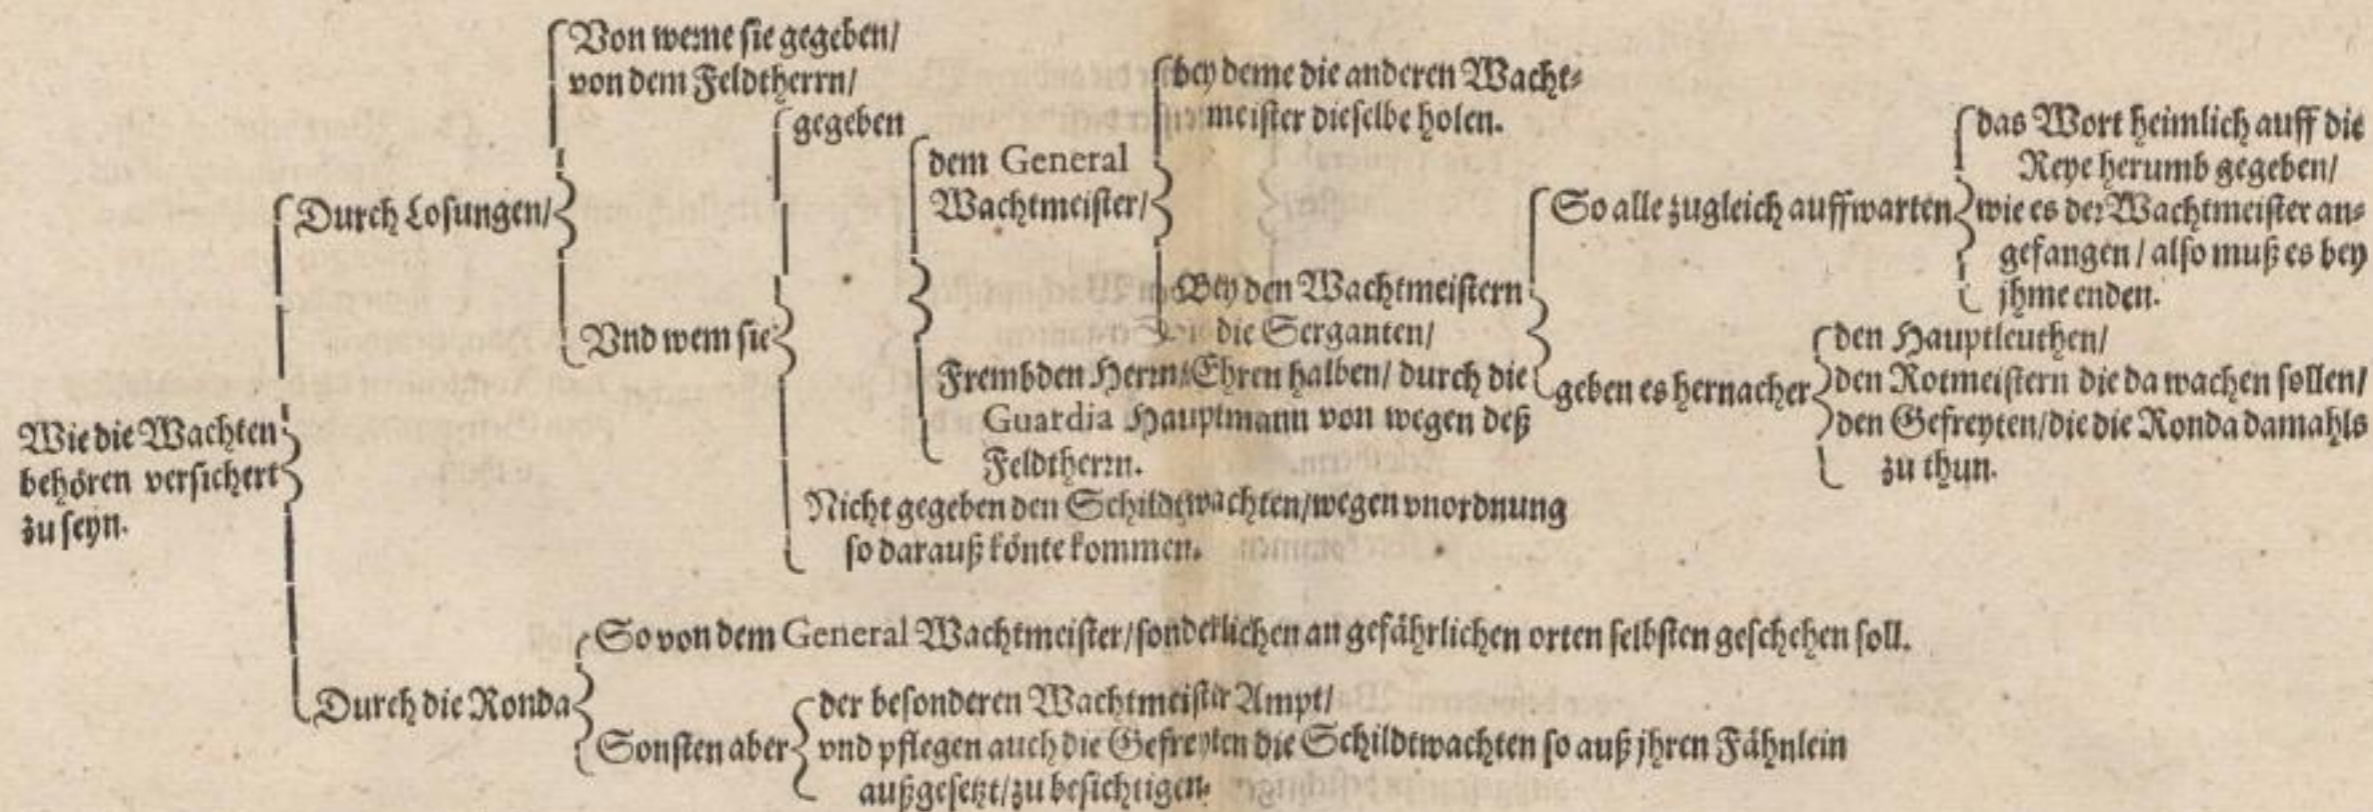 Wie die Wachten
behören versichert
zu seyn.
Durch Losungen/
Von weme sie gegeben/
von dem Feldtherrn/
Vnd wem sie
gegeben
dem General
Wachtmeister/
bey deme die anderen Wacht-
meister dieselbe holen.
Bey den Wachtmeistern
die Serganten/
So alle zugleich auffwarten
das Wort heimlich auff die
Reye herumb gegeben/
wie es der Wachtmeister an-
gefangen / also muß es bey
jhme enden.
geben es hernacher
den Hauptleuthen/
den Rotmeistern die da wachen sollen/
den Gefreyten/die die Ronda damahls
zu thun.
Frembden Herrn/Ehren halben/ durch die
Guardia Hauptmann von wegen deß
Feldtherrn.
Nicht gegeben den Schildtwachten/wegen vnordnung
so darauß könte kommen.
Durch die Ronda
So von dem General Wachtmeister/sonderlichen an gefährlichen orten selbsten geschehen soll.
Sonsten aber
der besonderen Wachtmeister Ampt/
vnd pflegen auch die Gefreyten die Schildtwachten so auß jhren Fähnlein
außgesetzt/zu besichtigen.